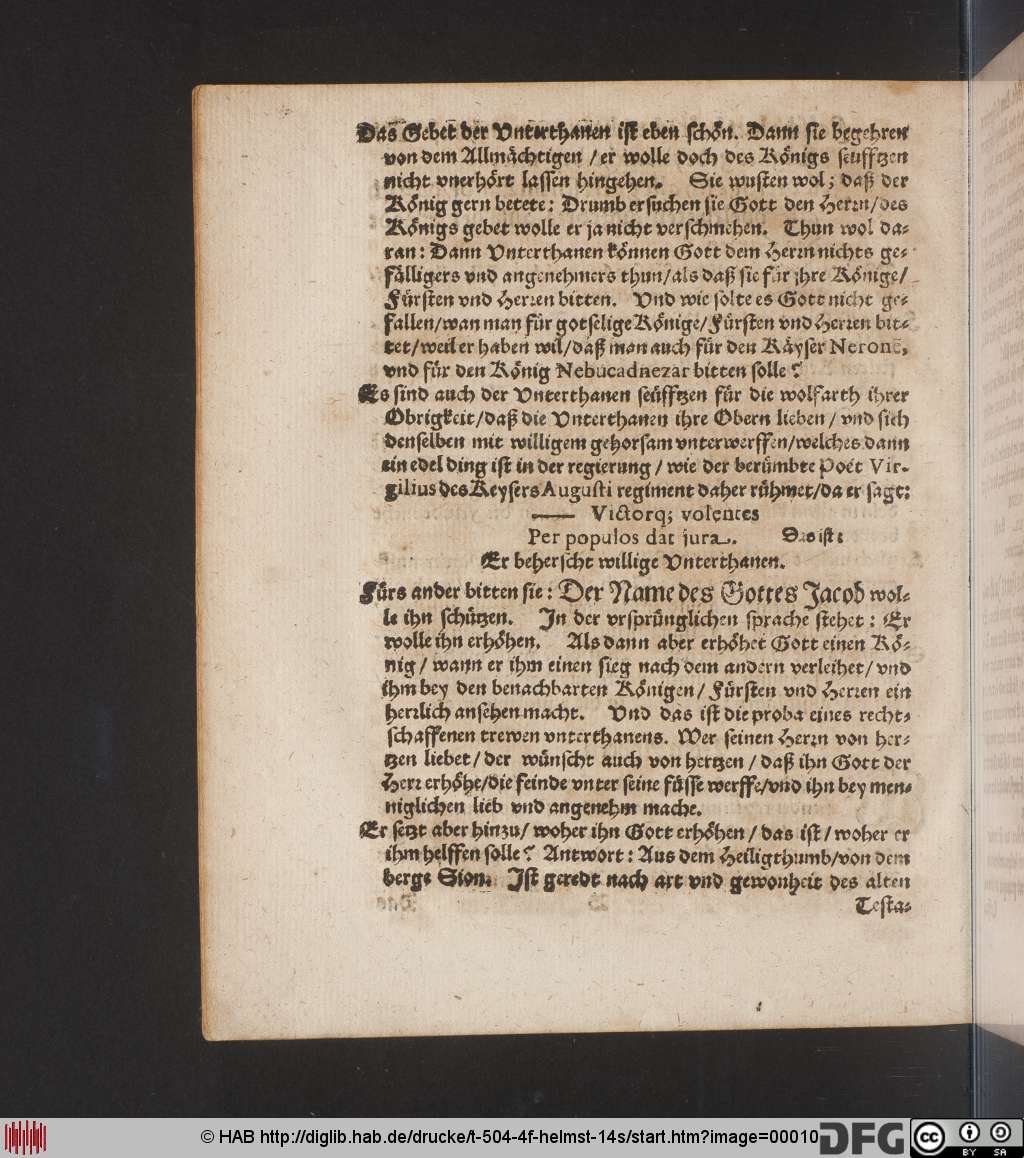 Das Gebet der Vnterthanen ist eben schön. Dann sie begehren
von dem Allmächtigen / er wolle doch des Königs seufftzen
nicht vnerhört lassen hingehen. Sie wusten wol; daß der
König gern betete: Drumb ersuchen sie Gott den Herrn/des
Königs gebet wolle er ja nicht verschmehen. Thun wol da-
ran: Dann Vnterthanen können Gott dem Herrn nichts ge-
fälligers vnd angenehmers thun/als daß sie für jhre Könige/
Fürsten vnd Herren bitten. Vnd wie solte es Gott nicht ge-
fallen/wan man für gotselige Könige/Fürsten vnd Herren bit-
tet/weil er haben wil/daß man auch für den Käyser Neronē,
vnd für den König Nebucadnezar bitten solle?
Es sind auch der Vnterthanen seüfftzen für die wolfarth ihrer
Obrigkeit/daß die Vnterthanen ihre Obern lieben / vnd sich
denselben mit willigem gehorsam vnterwerffen/welches dann
ein edel ding ist in der regierung / wie der berümbte Poët Vir-
gilius des Keysers Augusti regiment daher rühmet/da er sagt:
—— Victorq; volentes
Per populos dat jura. Das ist:
Er beherscht willige Vnterthanen.
Fürs ander bitten sie: Der Name des Gottes Jacob wol-
le ihn schützen. In der vrsprünglichen sprache stehet: Er
wolle ihn erhöhen. Als dann aber erhöhet Gott einen Kö-
nig / wann er ihm einen sieg nach dem andern verleihet/ vnd
ihm bey den benachbarten Königen/ Fürsten vnd Herren ein
herrlich ansehen macht. Vnd das ist die proba eines recht-
schaffenen trewen vnterthanens. Wer seinen Herrn von her-
tzen liebet/ der wünscht auch von hertzen / daß ihn Gott der
Herr erhöhe/die feinde vnter seine füsse werffe/vnd ihn bey men-
niglichen lieb vnd angenehm mache.
Er setzt aber hinzu/ woher ihn Gott erhöhen / das ist/ woher er
ihm helffen solle? Antwort: Aus dem Heiligthumb/von dem
berge Sion. Ist geredt nach art vnd gewonheit des alten
Testa-
© HAB http://diglib.hab.de/drucke/t-504-4f-helmst-14s/start.htm?image=00010
DFG
cc
BY SA